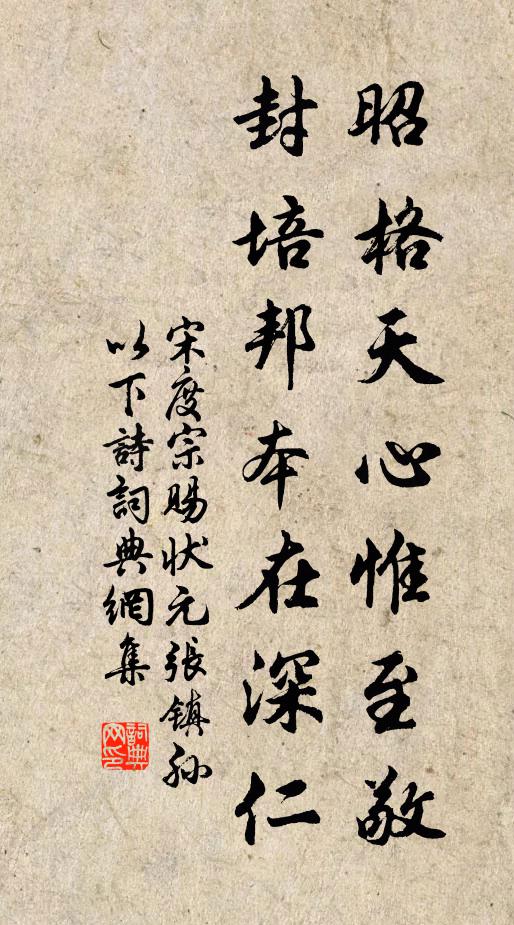 昭格天心惟至敬
封培邦本在深仁
宋度宗賜狀元張鎮孫
以下詩詞典網集
詞典網印